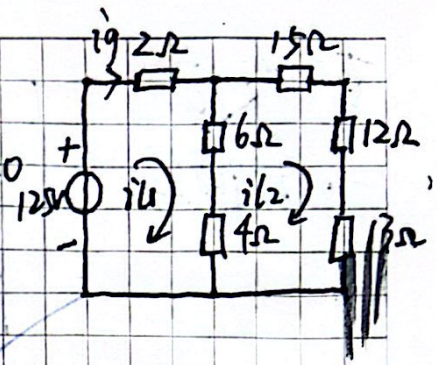 ig 2Ω 15Ω
+ 6Ω 12Ω
125V il1 il2
- 4Ω 13Ω